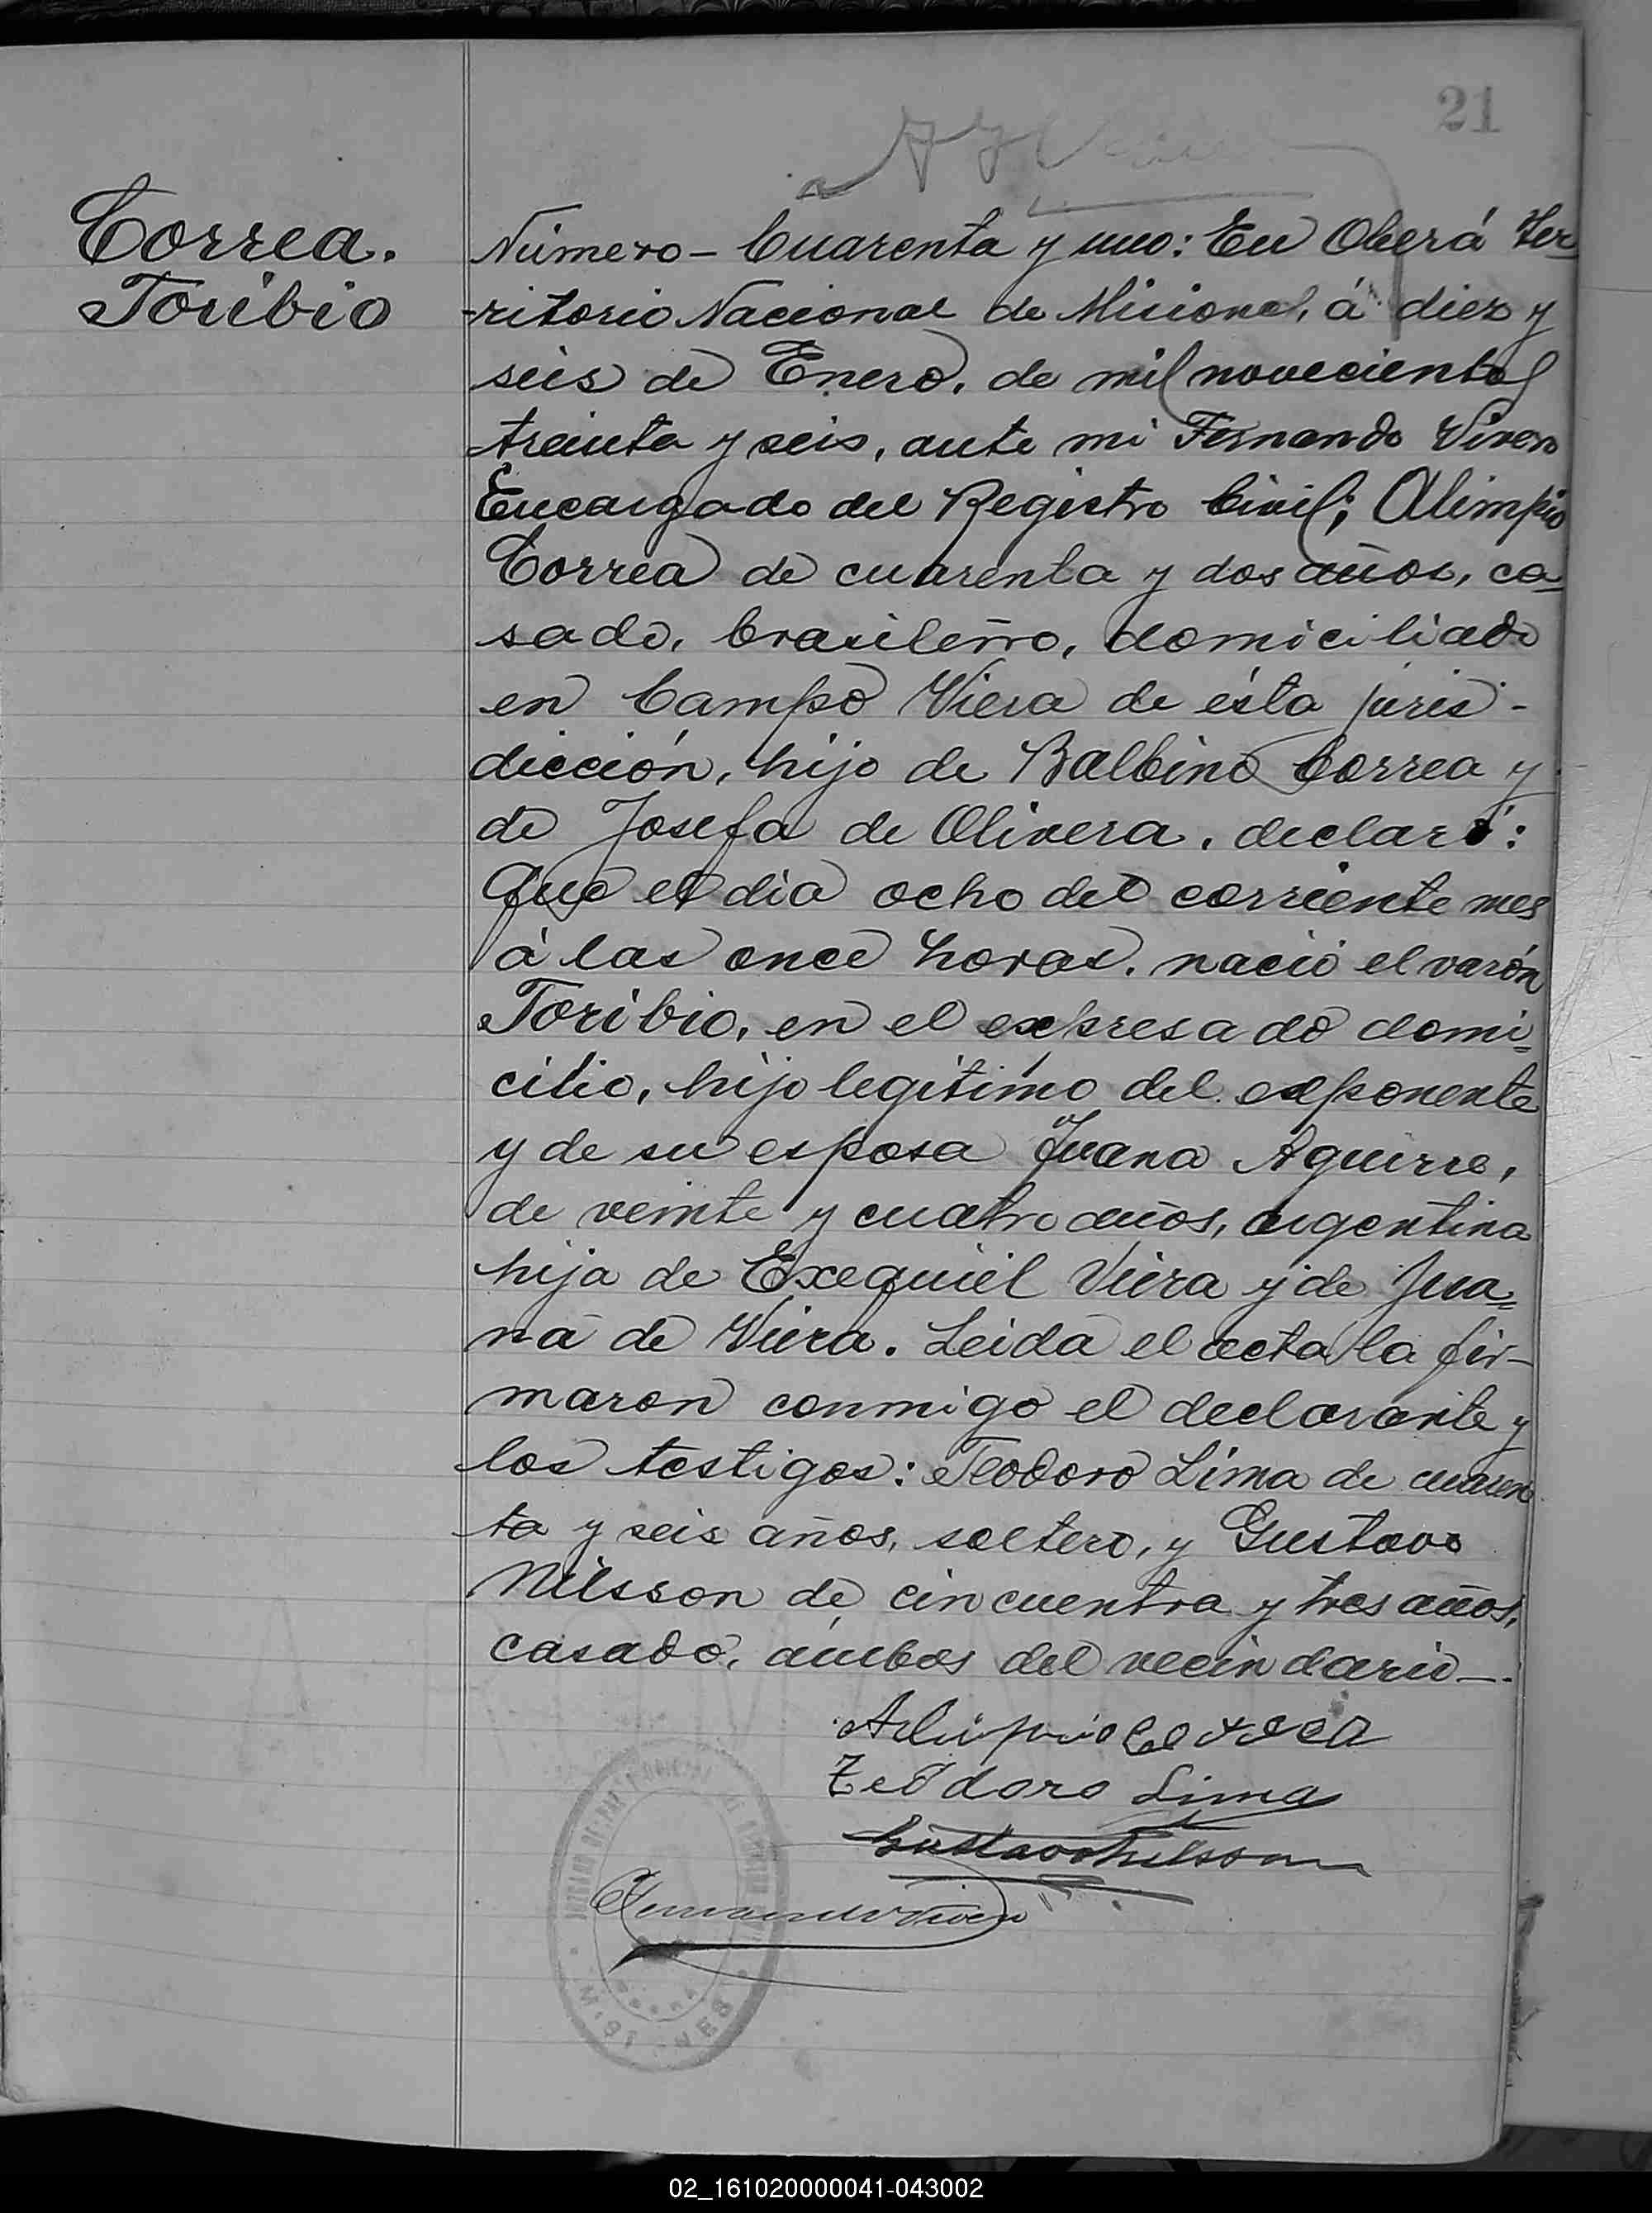 21
Correa.
Toribio
Número - Cuarenta y uno: En Oberá Ter-
-ritorio Nacional de Misiones, á diez y
seis de Enero, de mil novecientos
treinta y seis, ante mi Fernando Vivero
Encargado del Registro Civil; Alimpio
Correa de cuarenta y dos años, ca-
sado, brasileño, domiciliado
en Campo Viera de ésta juris-
dicción, hijo de Balbino Correa y
de Josefa de Olivera, declaró:
Que el dia ocho del corriente mes
á las once horas, nació el varón
Toribio, en el expresado domi-
cilio, hijo legítimo del exponente
y de su esposa Juana Aguirre,
de veinte y cuatro años, argentina
hija de Exequiel Viera y de Jua-
na de Viera. Leida el acta la fir-
maron conmigo el declarante y
los testigos: Teodoro Lima de cuaren
ta y seis años, soltero, y Gustavo
Nilsson de cincuentra y tres años,
casado, ámbos del vecindario-.
Alimpio Correa
Teodoro Lima
Gustavo Nilsson
02_161020000041-043002